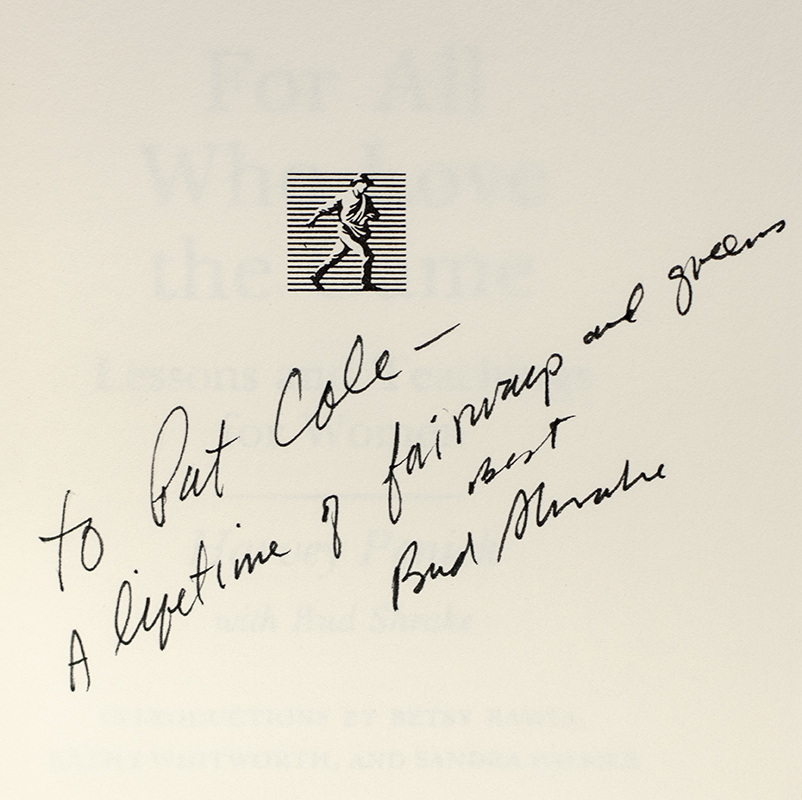 For All
Who Love
the Game
Lessons and Teachings
for Women
Harvey Penick
with Bud Shrake
INTRODUCTIONS BY BETSY RAWLS,
KATHY WHITWORTH, AND SANDRA PALMER
To Pat Cole -
A lifetime of fairways and greens
Best
Bud Shrake